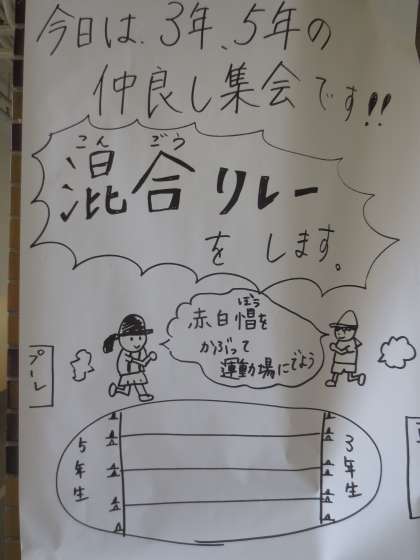 今日は、3年、5年の
仲良し集会です!!
こんごう
混合リレー
をします。
赤白帽を
ぼう
かぶって
運動場にでよう
プール
5年生
3年生